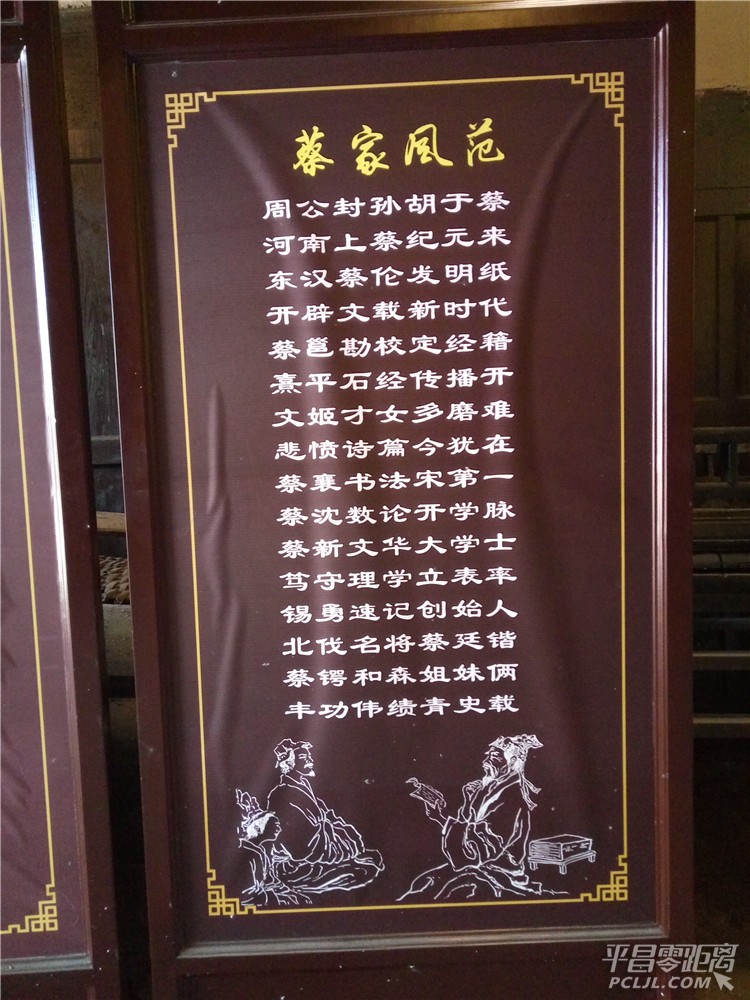 蔡家风范
周公封孙胡于蔡
河南上蔡纪元来
东汉蔡伦发明纸
开辟文载新时代
蔡邕勘校定经籍
熹平石经传播开
文姬才女多磨难
悲愤诗篇今犹在
蔡襄书法宋第一
蔡沈数论开学脉
蔡新文华大学士
笃守理学立表率
锡勇速记创始人
北伐名将蔡廷锴
蔡锷和森姐妹俩
丰功伟绩青史载
平昌零距离
PCLJL.COM